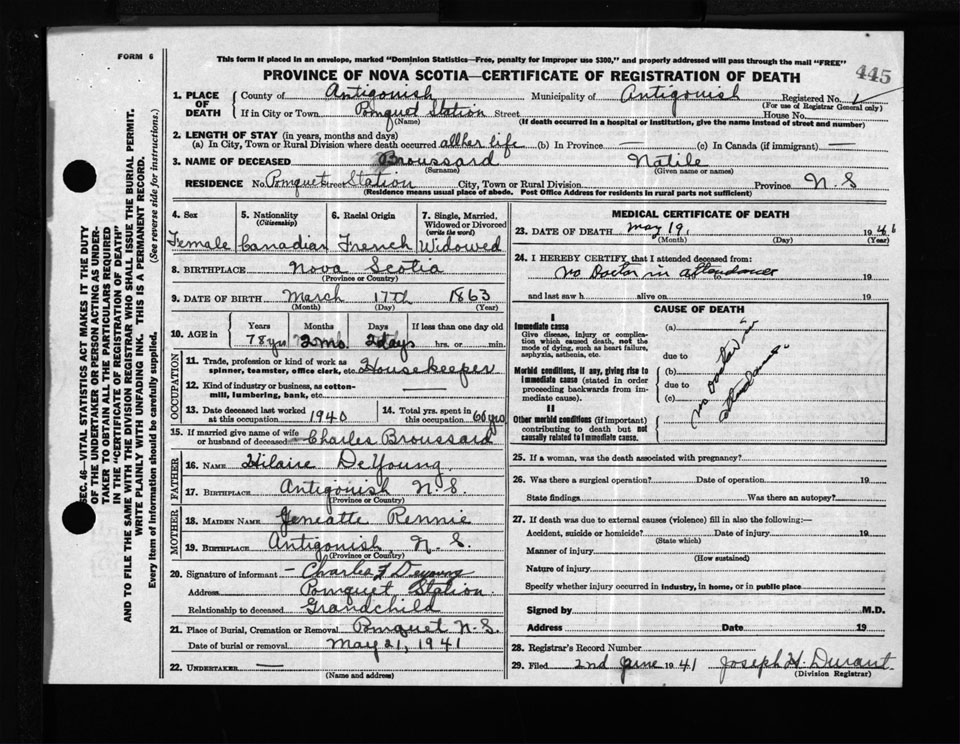 FORM 6
This form if placed in an envelope, marked "Dominion Statistics—Free, penalty for improper use $300," and properly addressed will pass through the mail "FREE"
PROVINCE OF NOVA SCOTIA—CERTIFICATE OF REGISTRATION OF DEATH
445
1. PLACE OF DEATH
County of Antigonish Municipality of Antigonish Registered No. 1
(For use of Registrar General only)
If in City or Town Pomquet Station Street House No.
(Name) (If death occurred in a hospital or institution, give the name instead of street and number)
2. LENGTH OF STAY (in years, months and days)
(a) In City, Town or Rural Division where death occurred all her life (b) In Province — (c) In Canada (if immigrant) —
3. NAME OF DECEASED Broussard Natile
(Surname) (Given name or names)
RESIDENCE No. Pomquet Street Station City, Town or Rural Division Province N.S
(Residence means usual place of abode. Post Office Address for residents in rural parts not sufficient)
4. Sex
Female
5. Nationality
(Citizenship)
Canadian
6. Racial Origin
French
7. Single, Married, Widowed or Divorced
(write the word)
Widowed
8. BIRTHPLACE Nova Scotia
(Province or Country)
9. DATE OF BIRTH March 17th 1863
(Month) (Day) (Year)
10. AGE in
Years Months Days If less than one day old
78 yrs 2 mo. 2 days hrs. or min.
OCCUPATION
11. Trade, profession or kind of work as
spinner, teamster, office clerk, etc. Housekeeper
12. Kind of industry or business, as cotton-
mill, lumbering, bank, etc. —
13. Date deceased last worked
at this occupation 1940
14. Total yrs. spent in
this occupation 60 yrs
15. If married give name of wife
or husband of deceased Charles Broussard
FATHER
16. NAME Hilaire DeYoung
17. BIRTHPLACE Antigonish N.S.
(Province or Country)
MOTHER
18. MAIDEN NAME Jeneatte Rennie
19. BIRTHPLACE Antigonish, N.S.
(Province or Country)
20. Signature of informant – Charles F Deyoung
Address Pomquet Station
Relationship to deceased Grandchild
21. Place of Burial, Cremation or Removal Pomquet N.S.
Date of burial or removal May 21, 1941
22. UNDERTAKER —
(Name and address)
MEDICAL CERTIFICATE OF DEATH
23. DATE OF DEATH May 19, 194
(Month) (Day) (Year)
24. I HEREBY CERTIFY that I attended deceased from:
No Doctor in attendance 19
and last saw h alive on 19
CAUSE OF DEATH
I
Immediate cause
Give disease, injury or complica-
tion which caused death, not the
mode of dying, such as heart failure,
asphyxia, asthenia, etc.
(a)
due to
Morbid conditions, if any, giving rise to
immediate cause (stated in order
proceeding backwards from im-
mediate cause).
(b)
due to
(c)
"No doctor in
attendance"
II
Other morbid conditions (if important)
contributing to death but not
causally related to immediate cause.
25. If a woman, was the death associated with pregnancy?
26. Was there a surgical operation? Date of operation 19
State findings Was there an autopsy?
27. If death was due to external causes (violence) fill in also the following:—
Accident, suicide or homicide? Date of injury 19
(State which)
Manner of injury
(How sustained)
Nature of injury
Specify whether injury occurred in industry, in home, or in public place
Signed by M.D.
Address Date 19
28. Registrar's Record Number
29. Filed 2nd June 1941 Joseph H. Durant
(Division Registrar)
SEC. 46—VITAL STATISTICS ACT MAKES IT THE DUTY
OF THE UNDERTAKER OR PERSON ACTING AS UNDER-
TAKER TO OBTAIN ALL THE PARTICULARS REQUIRED
IN THE "CERTIFICATE OF REGISTRATION OF DEATH"
AND TO FILE THE SAME WITH THE DIVISION REGISTRAR WHO SHALL ISSUE THE BURIAL PERMIT.
WRITE PLAINLY WITH UNFADING INK. THIS IS A PERMANENT RECORD.
Every item of information should be carefully supplied. (See reverse side for instructions.)